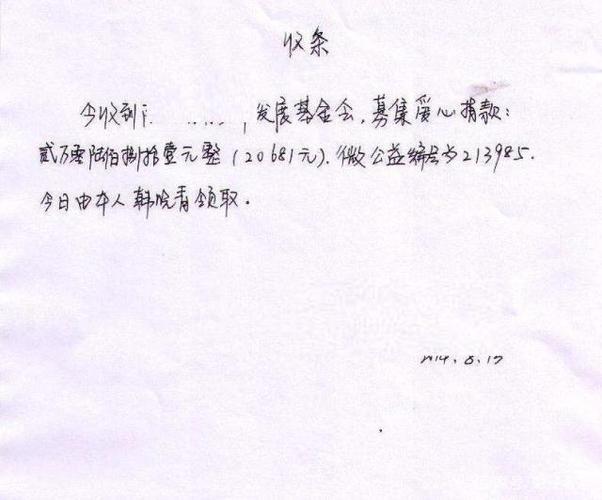 收条
今收到 发展基金会,募集爱心捌款:
贰万零陆佰捌拾壹元整(20681元).微公益编号为213985.
今日由本人韩晓青领取.
2014.8.17